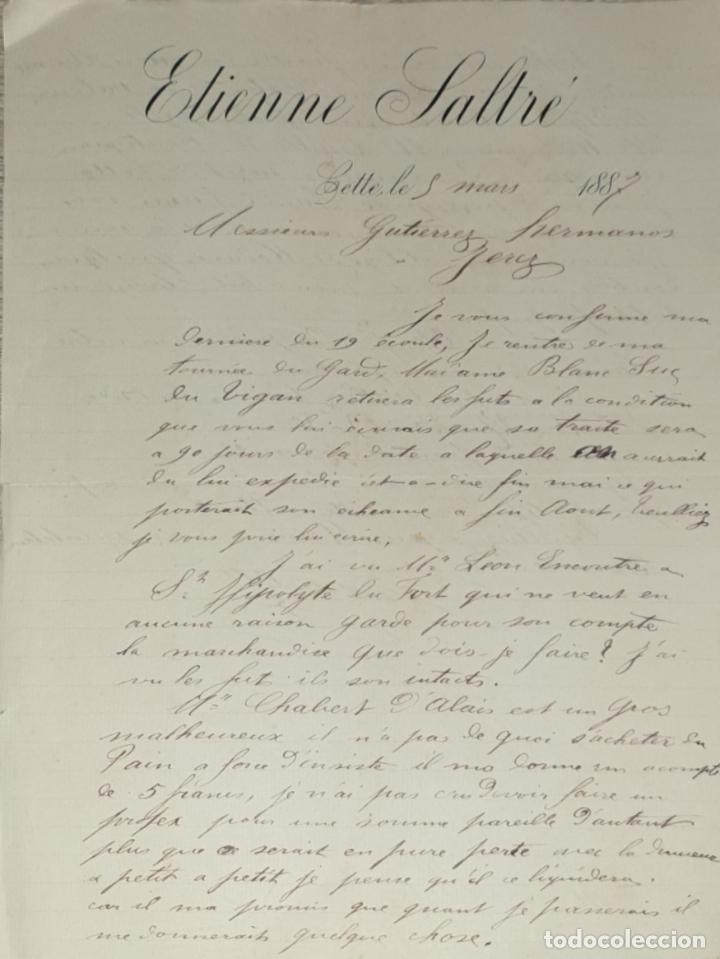 Etienne Saltré
Cette, le 5 mars 1887
Messieurs Gutierrez Hermanos
Jerez
Je vous confirme ma
derniere du 19 écoulé, Je rentre de ma
tournée du Gard, Madame Blanc Suc
du Vigan retirera les futs a la condition
que vous lui que sa traite sera
a 90 jours de la date a laquelle on aurait
du lui expedie c'est-a-dire fin mai ce qui
porterait son écheance a fin Aout, Veuillez
je vous prie lui écrire,
J'ai vu Mr Leon Encontre a
St Hipolyte du Fort qui ne veut en
aucune raison garde pour son compte
la marchandise que dois-je faire? J'ai
vu les fut ils son intacts.
Mr Chabert D'Alais est un gros
malheureux il n'a pas de quoi s'acheter du
Pain a force D'insiste il ma donne un acompte
de 5 francs, je n'ai pas cru Devoir faire un
protex pour une somme pareille D'autant
plus que ce serait en pure perte avec la
a petit a petit je pense qu'il ce liquidera.
car il ma promis que quant je passerais il
me donnerait quelque chose.
todocoleccion